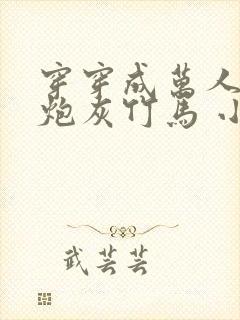 穿穿成萬人
炮灰竹馬 小
武芸芸